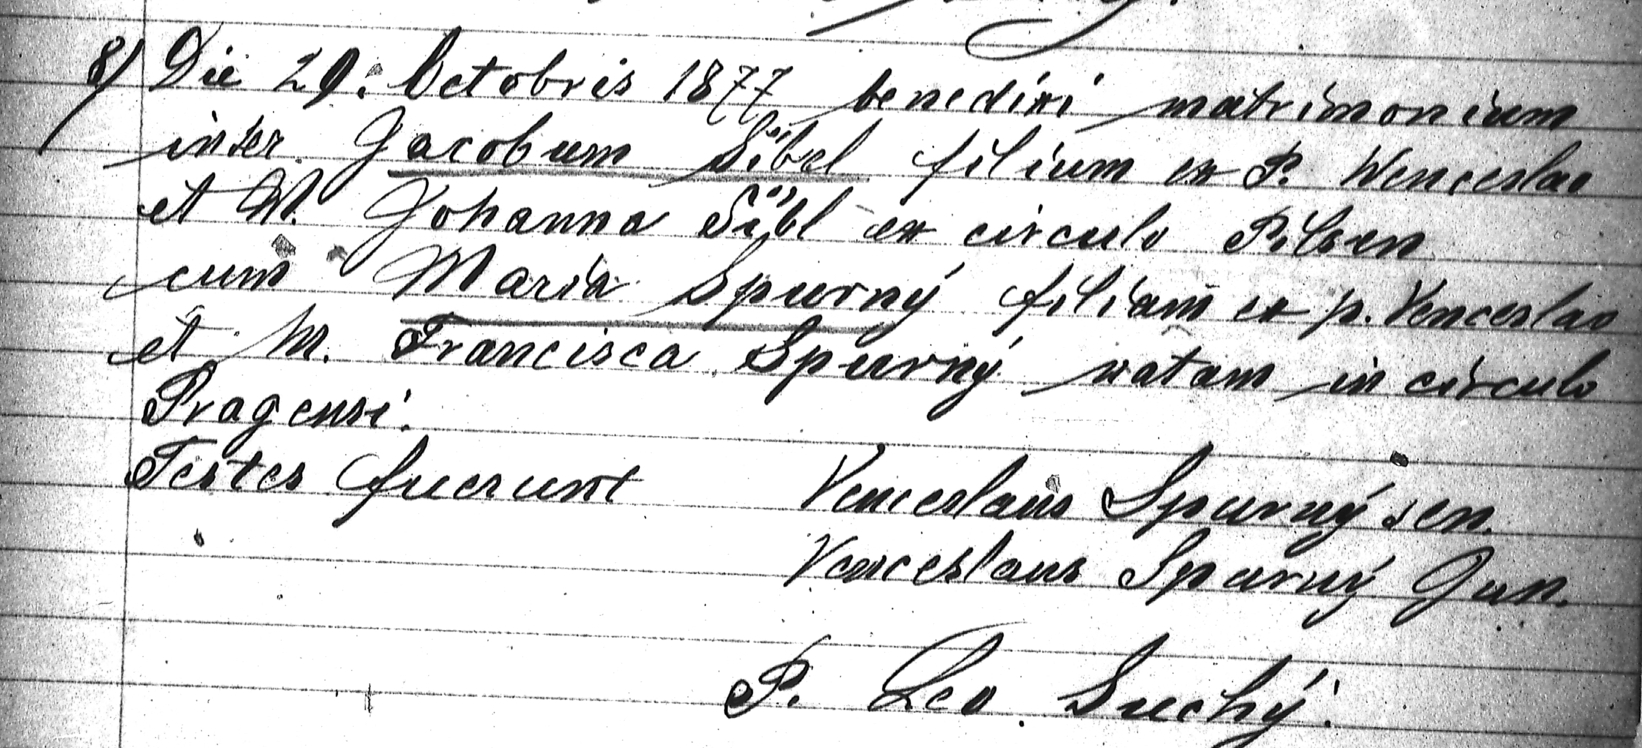 8) Die 29. Octobris 1877 benedixi matrimonium
inter Jacobum Síbel filium ex P. Wenceslao
et M. Johanna Síbl ex circulo Pilsen
cum Maria Spurný filiam ex p. Venceslao
et M. Francisca Spurný natam in circulo
Pragensi.
Testes fuerunt Venceslaus Spurný sen.
Venceslaus Spurný Jun.
P. Leo Suchý.